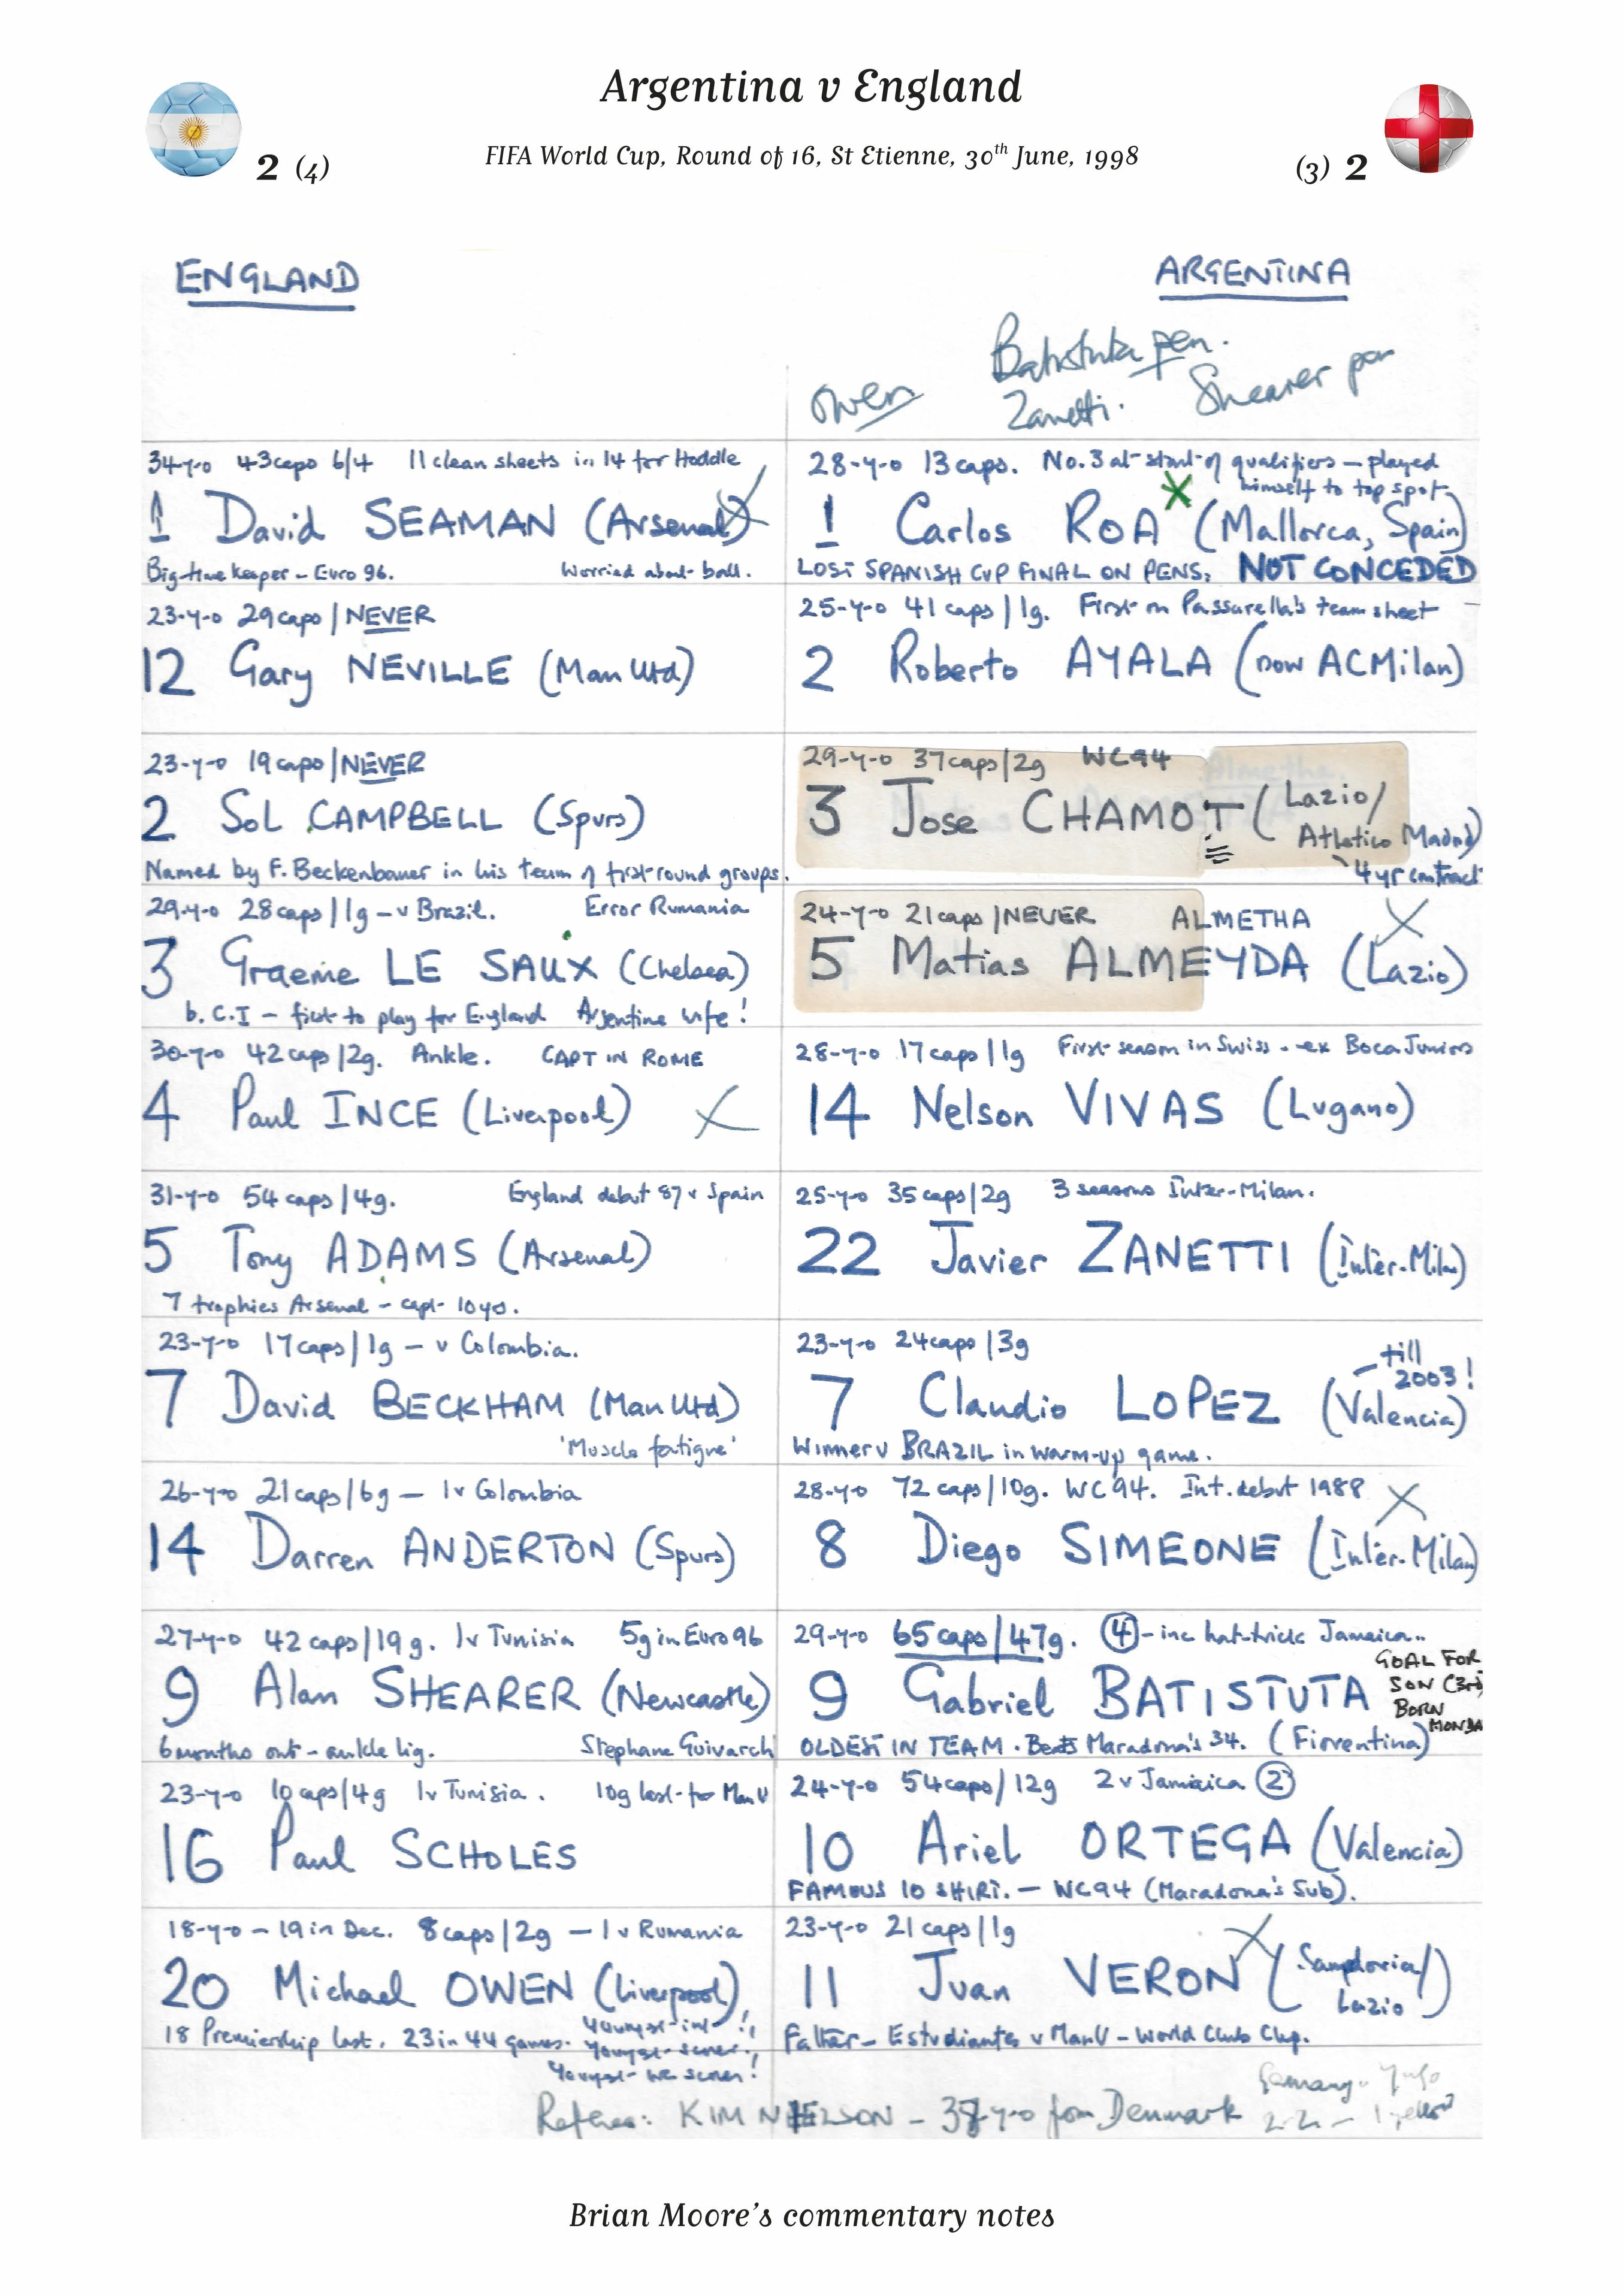 Argentina v England
FIFA World Cup, Round of 16, St Etienne, 30th June, 1998
2 (4)
(3) 2
ENGLAND
ARGENTINA
Batistuta pen.
Owen
Zanetti.
Shearer pen
34-y-o 43caps 6/4 11 clean sheets in 14 for Hoddle
1 David SEAMAN (Arsenal)
Big-time keeper - Euro 96. Worried about ball.
28-y-o 13 caps. No.3 at start of qualifiers - played
himself to top spot
1 Carlos ROA X (Mallorca, Spain)
LOST SPANISH CUP FINAL ON PENS. NOT CONCEDED
23-y-o 29caps / NEVER
12 Gary NEVILLE (Man Utd)
25-y-o 41 caps / 1g. First on Passarella's team sheet
2 Roberto AYALA (now AC Milan)
23-y-o 19caps / NEVER
2 Sol CAMPBELL (Spurs)
Named by F. Beckenbauer in his team of first round groups.
29-y-o 37caps/2g WC94
3 Jose CHAMOT (Lazio/
Atletico Madrid)
4 yr contract
29-y-o 28caps / 1g - v Brazil. Error Rumania
3 Graeme LE SAUX (Chelsea)
b. C.I - first to play for England Argentine wife!
24-y-o 21caps / NEVER ALMETHA
5 Matias ALMEYDA (Lazio)
30-y-o 42caps / 2g. Ankle. CAPT IN ROME
4 Paul INCE (Liverpool)
28-y-o 17caps / 1g First season in Swiss - ex Boca Juniors
14 Nelson VIVAS (Lugano)
31-y-o 54caps / 4g. England debut 87 v Spain
5 Tony ADAMS (Arsenal)
7 trophies Arsenal - capt 10yrs.
25-y-o 35caps/2g 3 seasons Inter-Milan.
22 Javier ZANETTI (Inter-Milan)
23-y-o 17caps / 1g - v Colombia.
7 David BECKHAM (Man Utd)
'Muscle fatigue'
23-y-o 24caps / 3g
- till
2003!
7 Claudio LOPEZ (Valencia)
Winner v BRAZIL in warm-up game.
26-y-o 21caps / 6g - 1v Colombia
14 Darren ANDERTON (Spurs)
28-y-o 72 caps / 10g. WC94. Int. debut 1988
8 Diego SIMEONE (Inter-Milan)
27-y-o 42caps / 19g. 1v Tunisia 5g in Euro 96
9 Alan SHEARER (Newcastle)
6 months out - ankle lig. Stephane Guivarch
29-y-o 65caps / 47g. 4 - inc hat-trick Jamaica..
GOAL FOR
SON (3rd)
BORN
MONDA
9 Gabriel BATISTUTA
OLDEST IN TEAM. Beats Maradona's 34. (Fiorentina)
23-y-o 10caps / 4g 1v Tunisia. 10g last for Man U
16 Paul SCHOLES
24-y-o 54caps / 12g 2 v Jamaica 2
10 Ariel ORTEGA (Valencia)
FAMOUS 10 SHIRT. - WC94 (Maradona's Sub).
18-y-o - 19 in Dec. 8caps / 2g - 1 v Rumania
20 Michael OWEN (Liverpool)
18 Premiership last. 23 in 44 games. Youngest int!
Youngest scorer!
Youngest WC scorer!
23-y-o 21 caps / 1g
11 Juan VERON (Sampdoria/
Lazio)
Father - Estudiantes v Man U - World Club Cup.
Referee: KIM NIELSON - 37-y-o from Denmark
Germany
2-2 -
Brian Moore's commentary notes